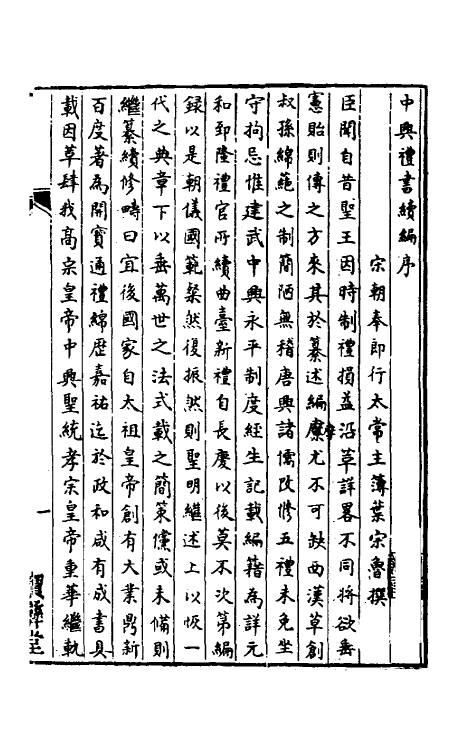 中興禮書續編序
宋朝奉郎行太常主薄葉宗魯撰
臣聞自昔聖王因時制禮損益沿革詳畧不同將欲垂
憲貽則傳之方來其於纂述編縻尤不可缺西漢草創
叔孫綿蕝之制簡陋無稽唐興諸儒改脩五禮未免坐
守拘忌惟建武中興永平制度經生記載編籍為詳元
和郅隆禮官所續曲臺新禮自長慶以後莫不次第編
録以是朝儀國範粲然復振然則聖明繼述上以恢一
代之典章下以垂萬世之法式載之簡策儻或未備則
繼纂續修疇曰宜後國家自太祖皇帝創有大業鼎新
百度著為開寶通禮綿歴嘉祐迄於政和咸有成書具
載因革肆我高宗皇帝中興聖統孝宗皇帝重華繼軌
一